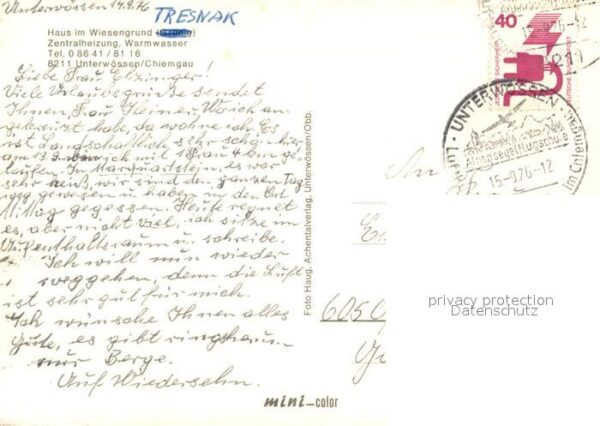 Unterwössen 14.9.76
TRESNAK
Haus im Wiesengrund
Zentralheizung, Warmwasser
Tel. 0 86 41 / 81 16
8211 Unterwössen/Chiemgau
Liebe Frau Etzinger!
Viele Urlaubsgrüsse sendet
Ihnen, Frau Heiner. Wo ich an
gekreuzt habe, da wohne ich. Es
ist Landschaftlich sehr schön hier,
am 13.9. bin ich mit 1 Frau 4 km ge
laufen. In Marquartstein, es war
sehr heiß, wir sind den ganzen Tag
weg gewesen u. haben in der
Mittag gegessen. Heute regnet
es, aber nicht viel, ich sitze im
Aufenthaltsraum u. schreibe.
Ich will nun wieder
weggehen, denn die Luft
ist sehr gut für mich.
Ich wünsche Ihnen alles
Gute, es gibt ringsherum
nur Berge.
Auf Wiedersehn.
Foto Haug, Achentalverlag, Unterwössen/Obb.
mini-color
An
605
40
JEDERZEIT SICHERHEIT
DEUTSCHE BUNDESPOST
15.-9.76-12
8211
UNTERWÖSSEN
Alpensegelflugschule
15.-9.76-12
im Chiemgau
privacy protection
Datenschutz